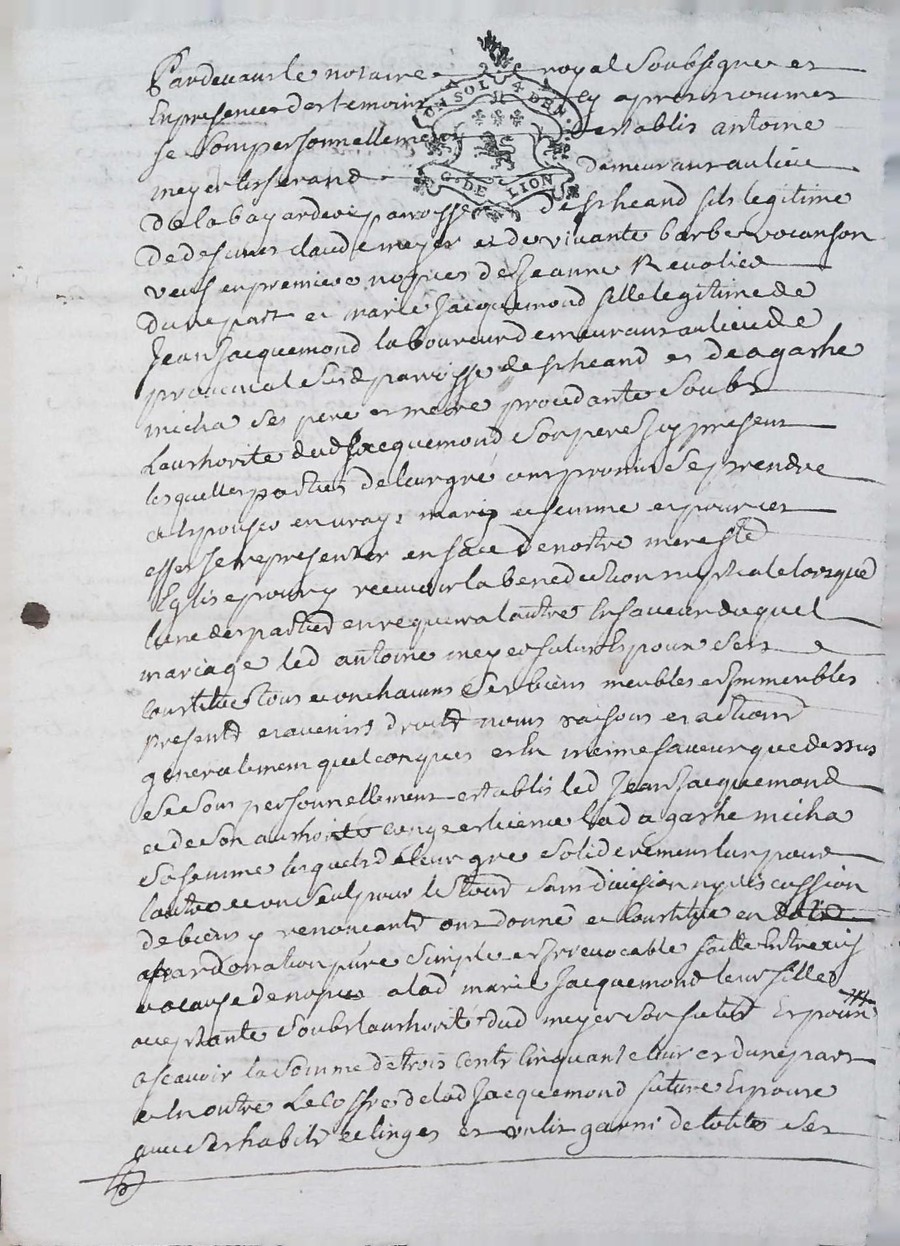 Pardevant le notaire royal Soubsigne et
En presence des temoins cy apres nommes
UN SOL 4 DEN.
se Sont personnellement establis antoine
meyer tisserand demeurant au lieu
G. DE LION
De la bayardere paroisse de st heand fils legitime
De defunct claude meyer et de vivante barbe vocanson
veuf en premiere nopces de Jeanne Revolier
Dune part et marie Jacquemond fille legitime de
Jean Jacquemond laboureur demeurant au lieu de
paroisse de st heand et de agathe
micha Ses pere et mere procedante Soubs
Lauthorite dud Jacquemond Son pere Icy present
lesquelles parties de leur gre ont promis Se prendre
et Epouser en vrays mary et femme et pour cet
effet Se representer en face de nostre mere ste
Eglise pour y recevoir la benediction nuptiale lorsque
lune des parties en requera lautre En faveur duquel
mariage led antoine meyer futur Epoux Sest
Constitue tous et un chacuns Ses biens meubles et Immeubles
presentz et avenirs droitz noms raisons et actions
generalement quelconques et En meme faveur que dessus
Se Sont personnellement establis led Jean Jacquemond
et de Son authorite conge et licence lad agathe micha
Sa femme lesquels de leur gre Soliderement lun pour
lautre et un Seul pour le tout Sans division ny discussion
de biens y renoncants ont donne et Constitue en
par donation pure Simple et Irrevocable faitte Entre vifs
a cause de nopces a lad marie Jacquemond leur fille
acceptante Soubs lauthorite dud meyer Son futur Epoux
a scavoir la Somme de trois Cents Cinquante livres dune part
et En outre Le Coffre de lad Jacquemond future Epouse
avec Ses habits et linges et un lit garni de touttes Ses